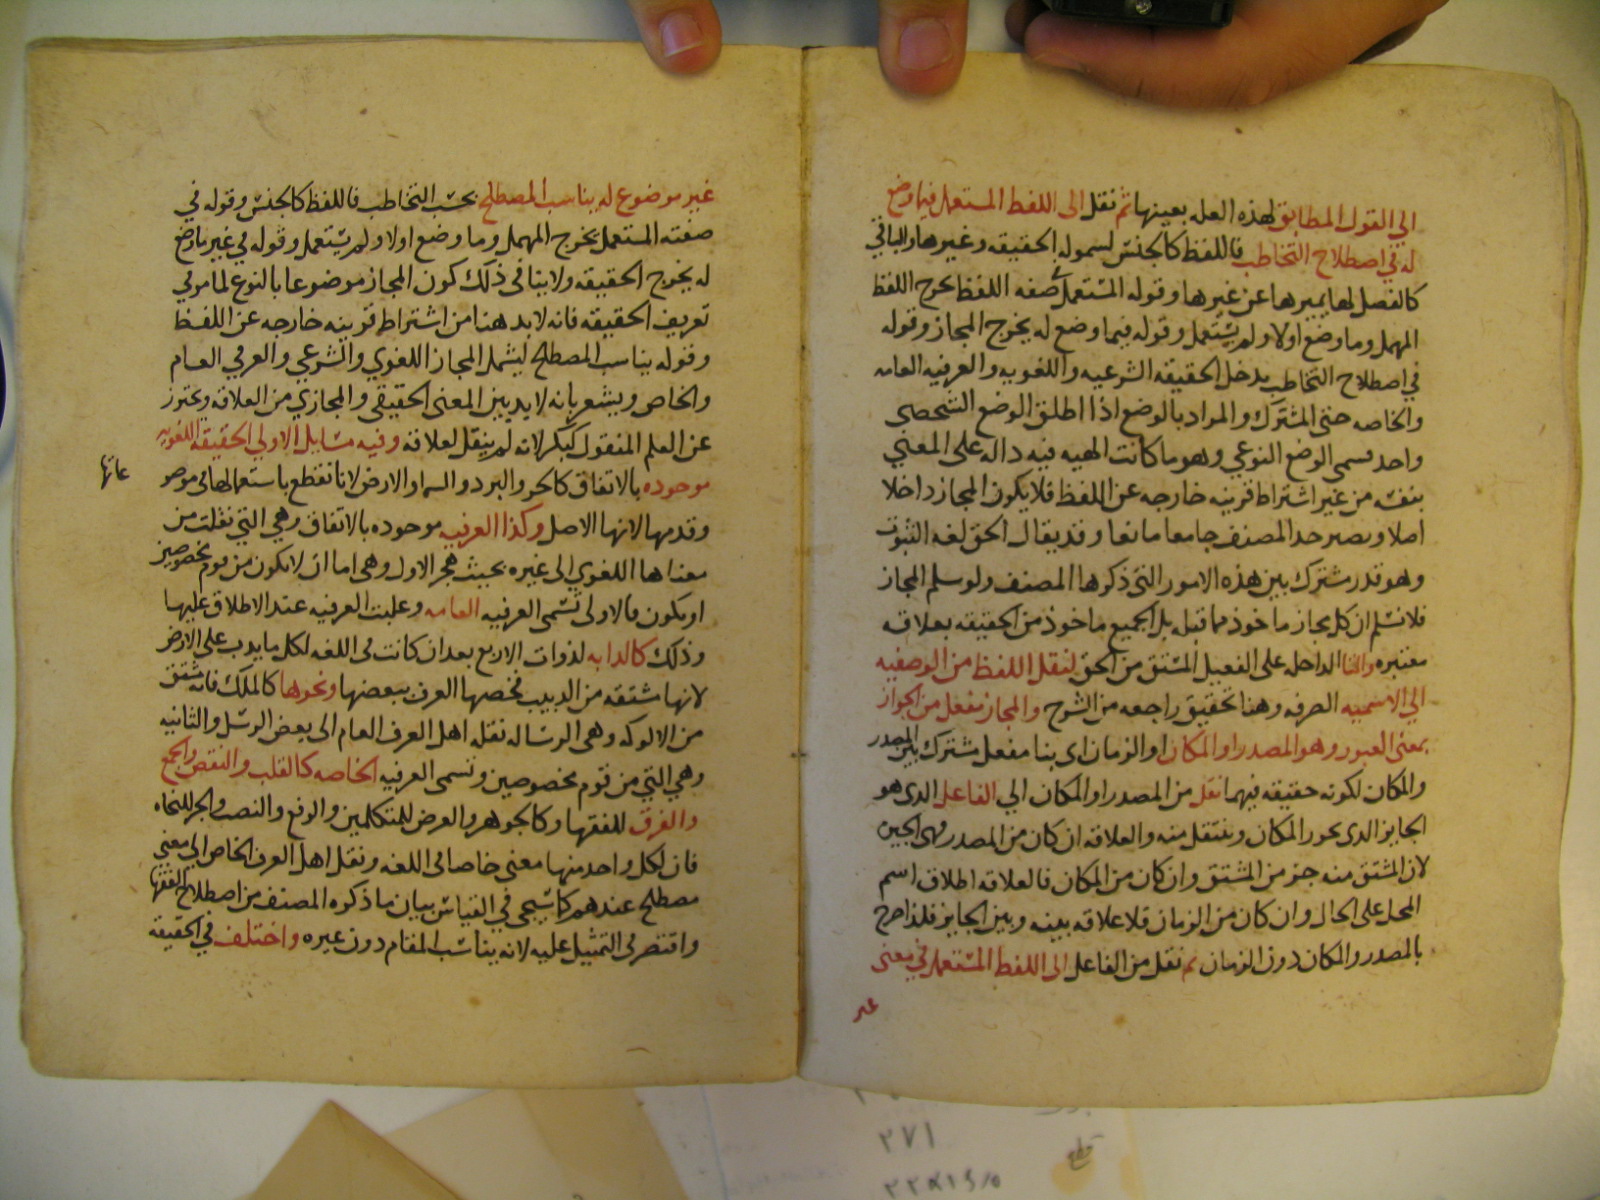 الي القول المطابق لهذه العله بعينها ثم نقل الى اللفظ المستعمل فيما وضع
له في اصطلاح التخاطب فاللفظ كالجنس لسموله الحقيقه وغيرها والباقي
كالفصل لها يميزها عن غيرها وقوله المستعمل في صفه اللفظ يخرج اللفظ
المهمل وما وضع اولا ولم يستعمل وقوله فيما وضع له يخرج المجاز وقوله
في اصطلاح التخاطب يدخل الحقيقه الشرعيه واللغويه والعرفيه العامه
والخاصه حتى المشترك والمراد بالوضع اذا اطلق الوضع الشخصي
واحد قسمى الوضع النوعي وهو ما كانت الهيه فيه داله على المعنى
بنفسه من غير اشتراط قرينه خارجه عن اللفظ فلا يكون المجاز داخلا
اصلا ويصير حد المصنف جامعا مانعا وقد يقال الحق لغه الثبوت
وهو قدر مشترك بين هذه الامور التي ذكرها المصنف ولو سلم المجاز
فلا نسلم ان كل مجاز ماخوذ مما قبله بل الجميع ماخوذ من الحقيقه بعلاقه
معتبره والتا الداخل على الفعيل المشتق من الحق لنقل اللفظ من الوصفيه
الي الاسميه الصرفه وهذا تحقيق راجعه من الشرح والمجاز مفعل من الجواز
بمعنى العبور وهو المصدر او المكان او الزمان اى بنا مفعل مشترك بين المصدر
والمكان لكونه حقيقه فيهما نقل من المصدر او المكان الي الفاعل الذي هو
الجايز الذي يجوز المكان وينتقل منه والعلاقه ان كان من المصدر فهى الجين
لان المشتق منه جز من المشتق وان كان من المكان فالعلاقه اطلاق اسم
المحل على الحال وان كان من الزمان فلا علاقه بينه وبين الجايز فلذا صرح
بالمصدر والمكان دون الزمان ثم نقل من الفاعل الى اللفظ المستعمل في معنى
غير
غير موضوع له يناسب المصطلح بحسب التخاطب فاللفظ كالجنس وقوله في
صفته المستعمل يخرج المهمل وما وضع اولا ولم يستعمل وقوله في غير ما وضع
له يخرج الحقيقه ولا ينافى ذلك كون المجاز موضوعا بالنوع لما مر في
تعريف الحقيقه فانه لابد هنا من اشتراط قرينه خارجه عن اللفظ
وقوله يناسب المصطلح ليشمل المجاز اللغوي والشرعي والعرفي العام
والخاص ويشعر بانه لابد بين المعنى الحقيقي والمجازي من العلاقه ويحترز
عن العلم المنقول كبكر لانه لم ينقل لعلاقه وفيه مسايل الاولي الحقيقه اللغويه
موجوده بالاتفاق كالحر والبرد والسما والارض لانا نقطع باستعمالها في موضو
عاتها
وقدمها لانها الاصل وكذا العرفيه موجوده بالاتفاق وهي التي نقلت من
معناها اللغوي الى غيره بحيث هجر الاول وهى اما ان لا يكون من قوم مخصوصين
او يكون فالاولى تسمى العرفيه العامه وغلبت العرفيه عند الاطلاق عليها
وذلك كالدابه لذوات الاربع بعد ان كانت في اللغه لكل ما يدب على الارض
لانها مشتقه من الدبيب فخصها العرف ببعضها ونحوها كالملك فانه مشتق
من الالوكه وهى الرساله نقله اهل العرف العام الى بعض الرسل والثانيه
وهي التي من قوم مخصوصين وتسمى العرفيه الخاصه كالقلب والنقض والجمع
والفرق للفقها وكالجوهر والعرض للمتكلمين والرفع والنصب والجر للنحاه
فان لكل واحد منها معنى خاصا في اللغه ونقل اهل العرف الخاص الي معنى
مصطلح عندهم كما سيجي في القياس بيان ما ذكره المصنف من اصطلاح الفقها
واقتصر في التمثيل عليه لانه يناسب المقام دون غيره واختلف في الحقيقه
٢٧١